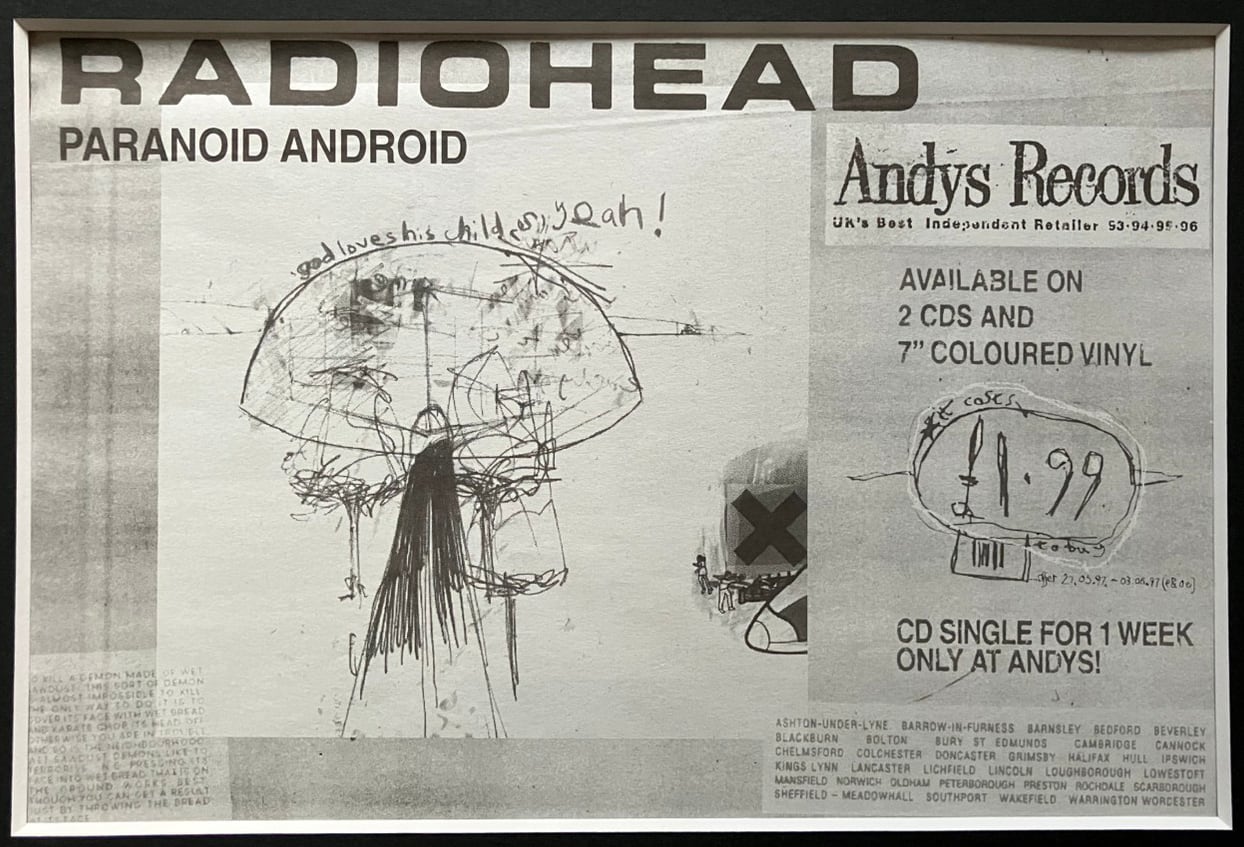 RADIOHEAD
PARANOID ANDROID
god loves his children, yeah!
Andys Records
UK's Best Independent Retailer 93·94·95·96
AVAILABLE ON
2 CDS AND
7” COLOURED VINYL
it costs
£1.99
to buy
offer 27.05.97 - 03.06.97
CD SINGLE FOR 1 WEEK
ONLY AT ANDYS!
O KILL A DEMON MADE OF WET
AWDUST. THIS SORT OF DEMON
S ALMOST IMPOSSIBLE TO KILL
THE ONLY WAY TO DO IT IS TO
COVER ITS FACE WITH WET BREAD
AND KARATE CHOP ITS HEAD OFF
OTHERWISE YOU ARE IN TROUBLE
AND SO IS THE NEIGHBOURHOOD
WET SAWDUST DEMONS LIKE TO
TERRORIZE. N.B. PRESSING ITS
FACE INTO WET BREAD THAT IS ON
THE GROUND WORKS BEST
THOUGH YOU CAN GET A RESULT
JUST BY THROWING THE BREAD
AT ITS FACE
ASHTON-UNDER-LYNE BARROW-IN-FURNESS BARNSLEY BEDFORD BEVERLEY
BLACKBURN BOLTON BURY ST EDMUNDS CAMBRIDGE CANNOCK
CHELMSFORD COLCHESTER DONCASTER GRIMSBY HALIFAX HULL IPSWICH
KINGS LYNN LANCASTER LICHFIELD LINCOLN LOUGHBOROUGH LOWESTOFT
MANSFIELD NORWICH OLDHAM PETERBOROUGH PRESTON ROCHDALE SCARBOROUGH
SHEFFIELD - MEADOWHALL SOUTHPORT WAKEFIELD WARRINGTON WORCESTER